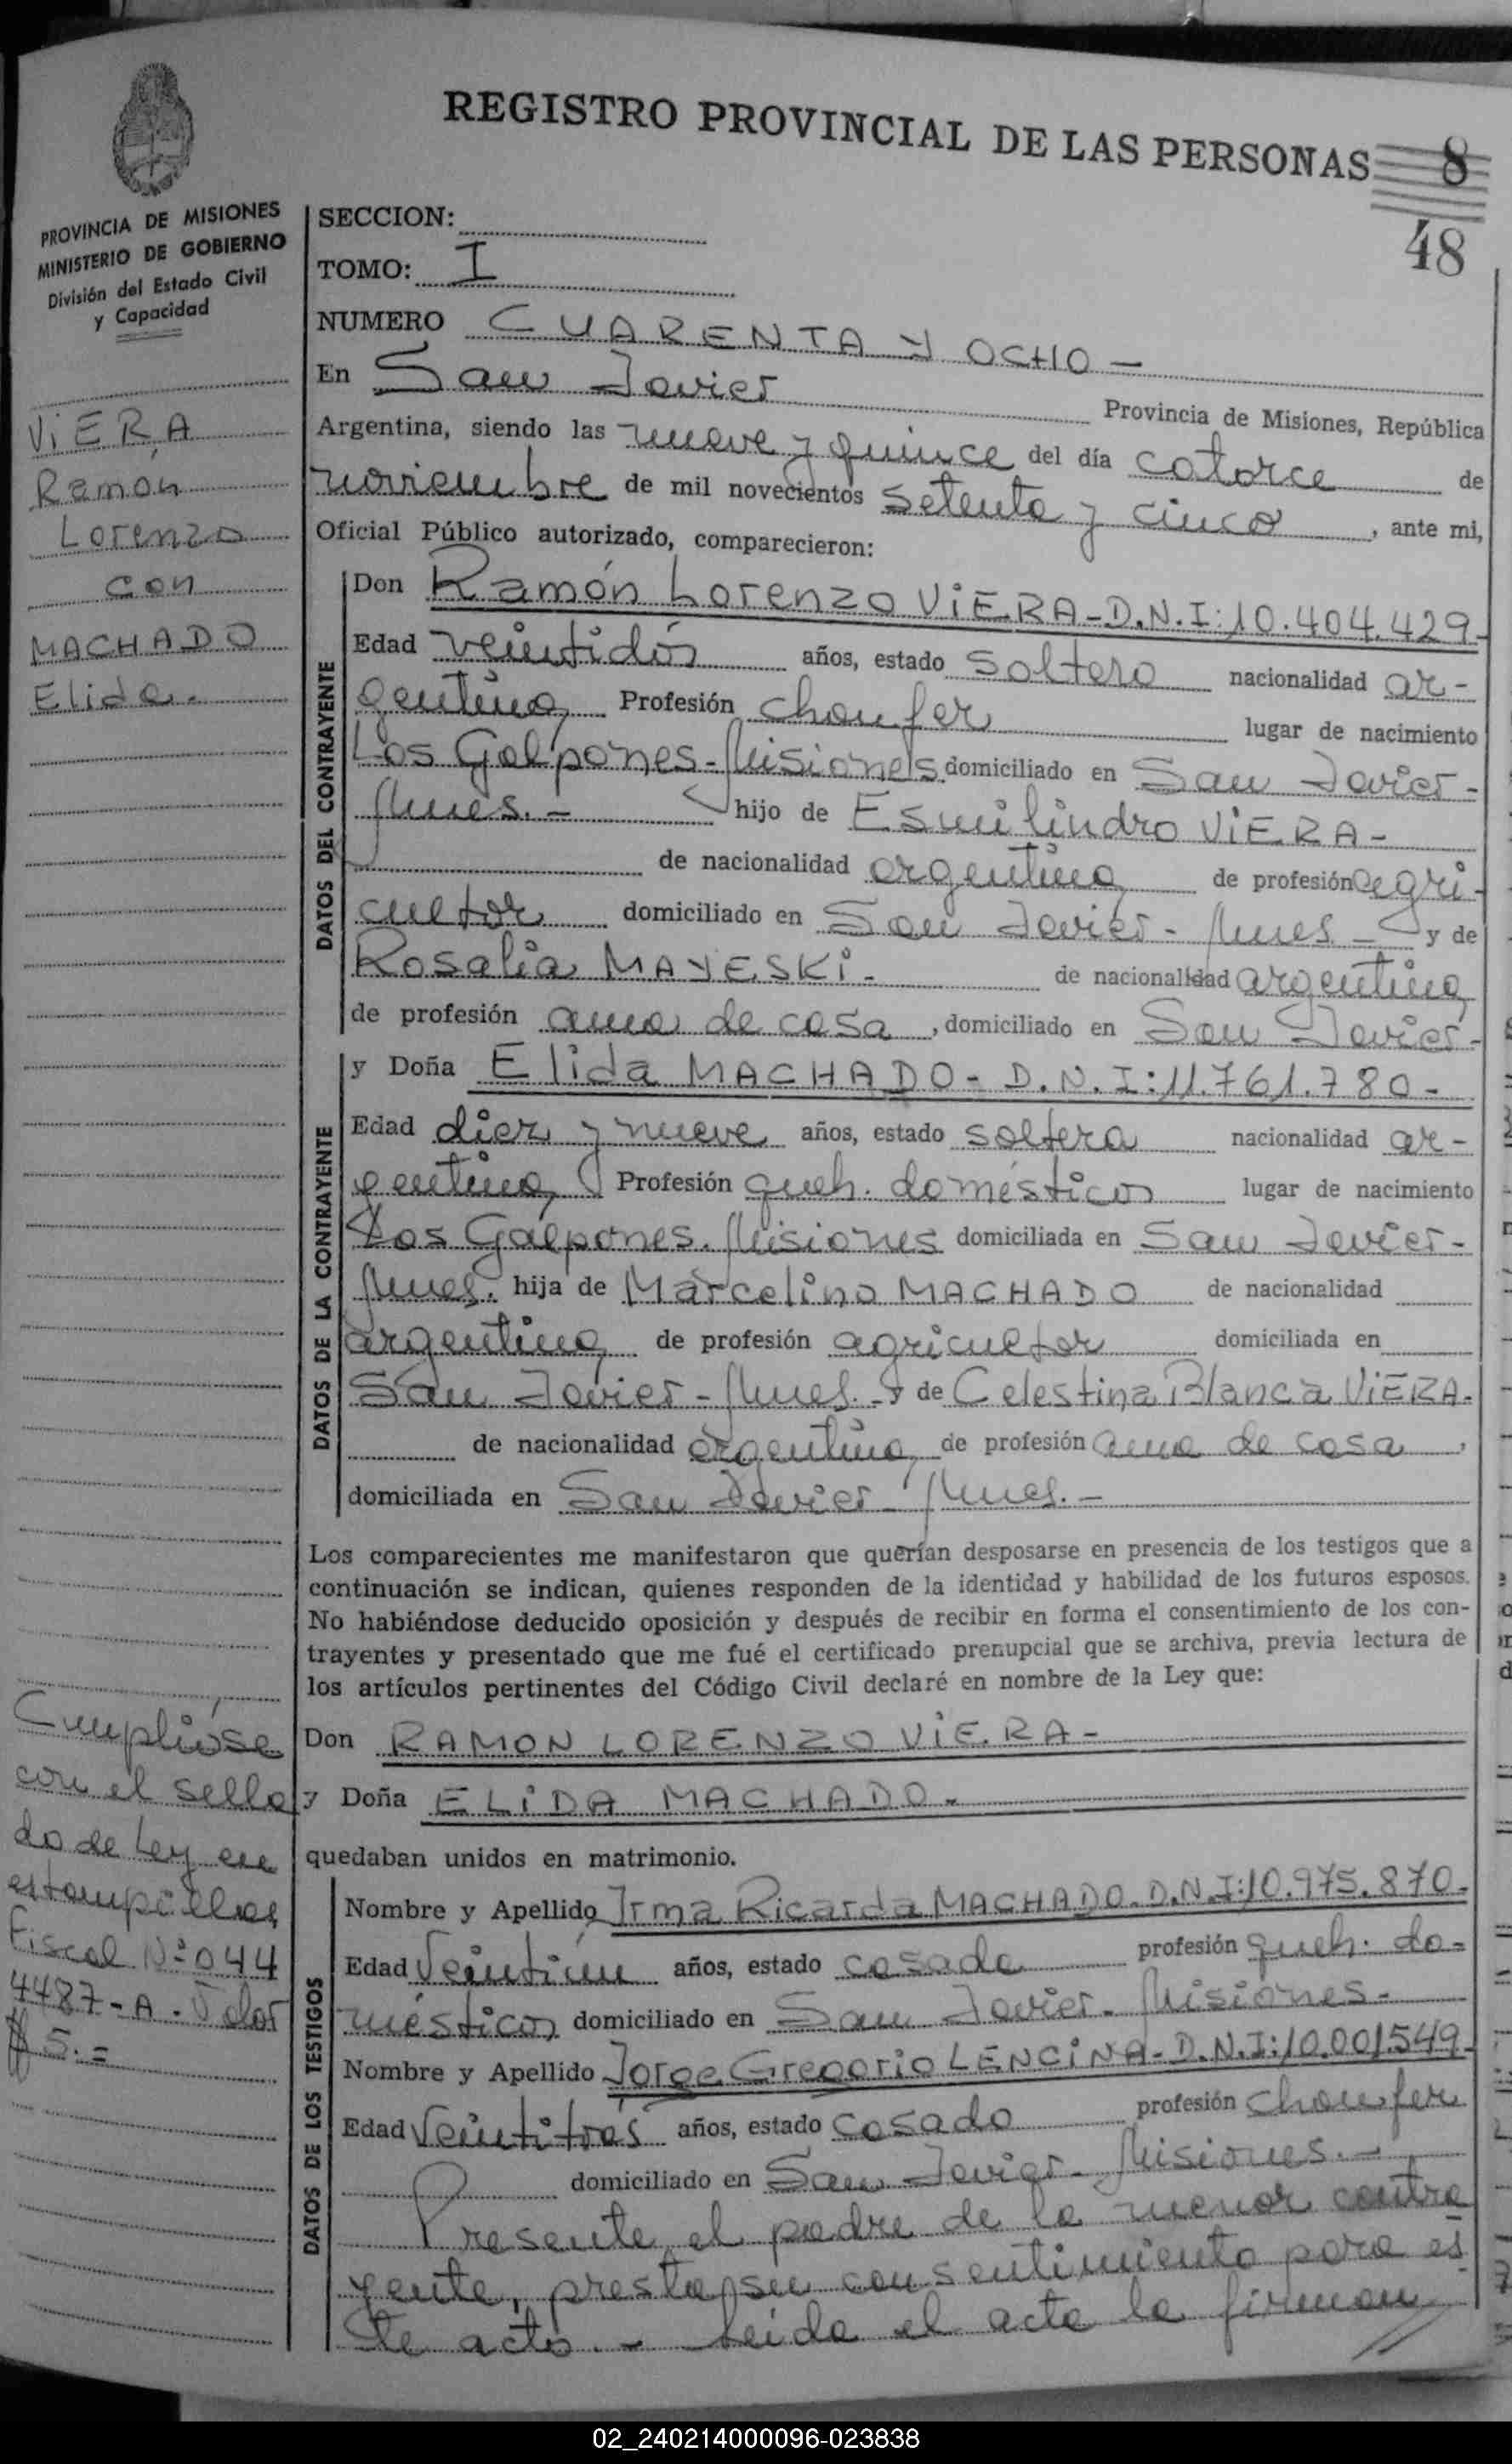 REGISTRO PROVINCIAL DE LAS PERSONAS 8
48
PROVINCIA DE MISIONES
MINISTERIO DE GOBIERNO
División del Estado Civil
y Capacidad
VIERA
Ramón
Lorenzo
con
MACHADO
Elida.
SECCION:
TOMO: I
NUMERO CUARENTA Y OCHO -
En San Javier Provincia de Misiones, República
Argentina, siendo las nueve y quince del día catorce de
noviembre de mil novecientos setenta y cinco, ante mi,
Oficial Público autorizado, comparecieron:
DATOS DEL CONTRAYENTE
Don Ramón Lorenzo VIERA - D.N.I: 10.404.429 -
Edad veintidós años, estado soltero nacionalidad ar-
gentina, Profesión choufer lugar de nacimiento
Los Galpones - Misiones domiciliado en San Javier -
Mnes. - hijo de Esmilindro VIERA -
de nacionalidad argentina de profesión agri-
cultor domiciliado en San Javier - Mnes - y de
Rosalia MAYESKI - de nacionalidad argentina
de profesión ama de casa, domiciliado en San Javier -
DATOS DE LA CONTRAYENTE
y Doña Elida MACHADO - D.N.I: 11.761.780 -
Edad diez y nueve años, estado soltera nacionalidad ar-
gentina, Profesión queh. domésticos lugar de nacimiento
Los Galpones. Misiones domiciliada en San Javier -
Mnes. hija de Marcelino MACHADO de nacionalidad
argentina, de profesión agricultor domiciliada en
San Javier - Mnes. - y de Celestina Blanca VIERA -
de nacionalidad argentina, de profesión ama de casa,
domiciliada en San Javier - Mnes. -
Los comparecientes me manifestaron que querían desposarse en presencia de los testigos que a
continuación se indican, quienes responden de la identidad y habilidad de los futuros esposos.
No habiéndose deducido oposición y después de recibir en forma el consentimiento de los con-
trayentes y presentado que me fué el certificado prenupcial que se archiva, previa lectura de
los artículos pertinentes del Código Civil declaré en nombre de la Ley que:
Don RAMON LORENZO VIERA -
y Doña ELIDA MACHADO -
quedaban unidos en matrimonio.
Cumplióse
con el sella
do de Ley en
estampillas
Fiscal Nº 044
4487 - A - Valor
$ 5. =
DATOS DE LOS TESTIGOS
Nombre y Apellido Irma Ricarda MACHADO - D.N.I: 10.975.870 -
Edad Veintiún años, estado casada profesión queh. do-
mésticos domiciliado en San Javier - Misiones -
Nombre y Apellido Jorge Gregorio LENCINA - D.N.I: 10.001.549 -
Edad Veintitrés años, estado casado profesión choufer
domiciliado en San Javier - Misiones. -
Presente el padre de la menor contra
yente, presta su consentimiento para es
te acto. - Leida el acta la firman
02_240214000096-023838